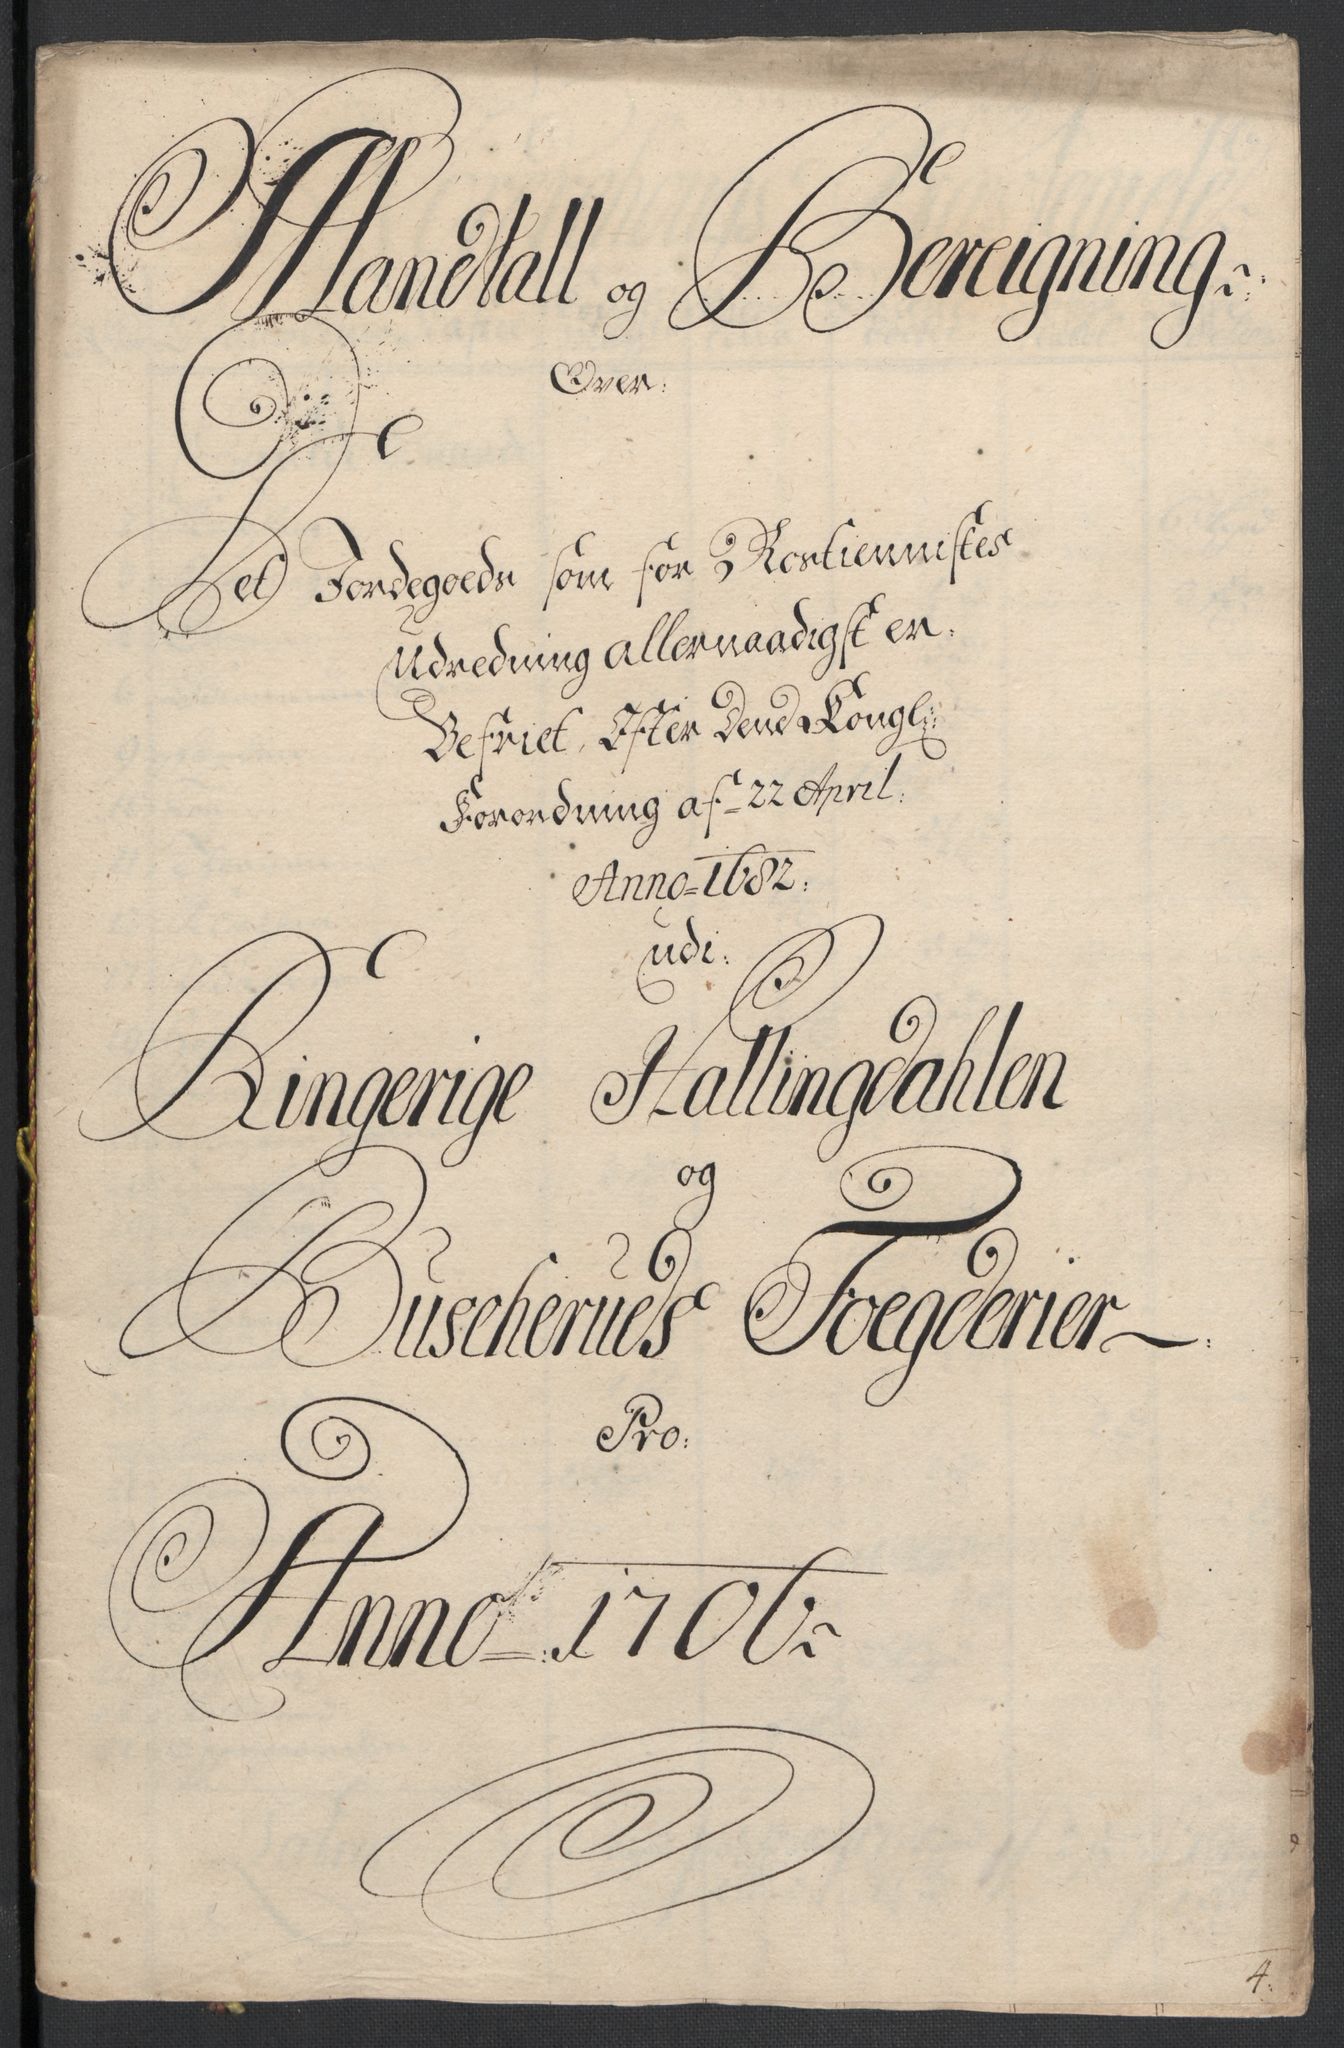 Mandtall og Bereigning
Over:
Det Jordegoeds som for Rostiennistes
Udredning allernaadigst er
Befriet, Efter Dend Kongl:
Forordning af 22 April:
Anno 1682:
udi:
Ringerige Hallingdahlen
og
Buscheruds Foegderier
Pro:
Anno 1706
4.